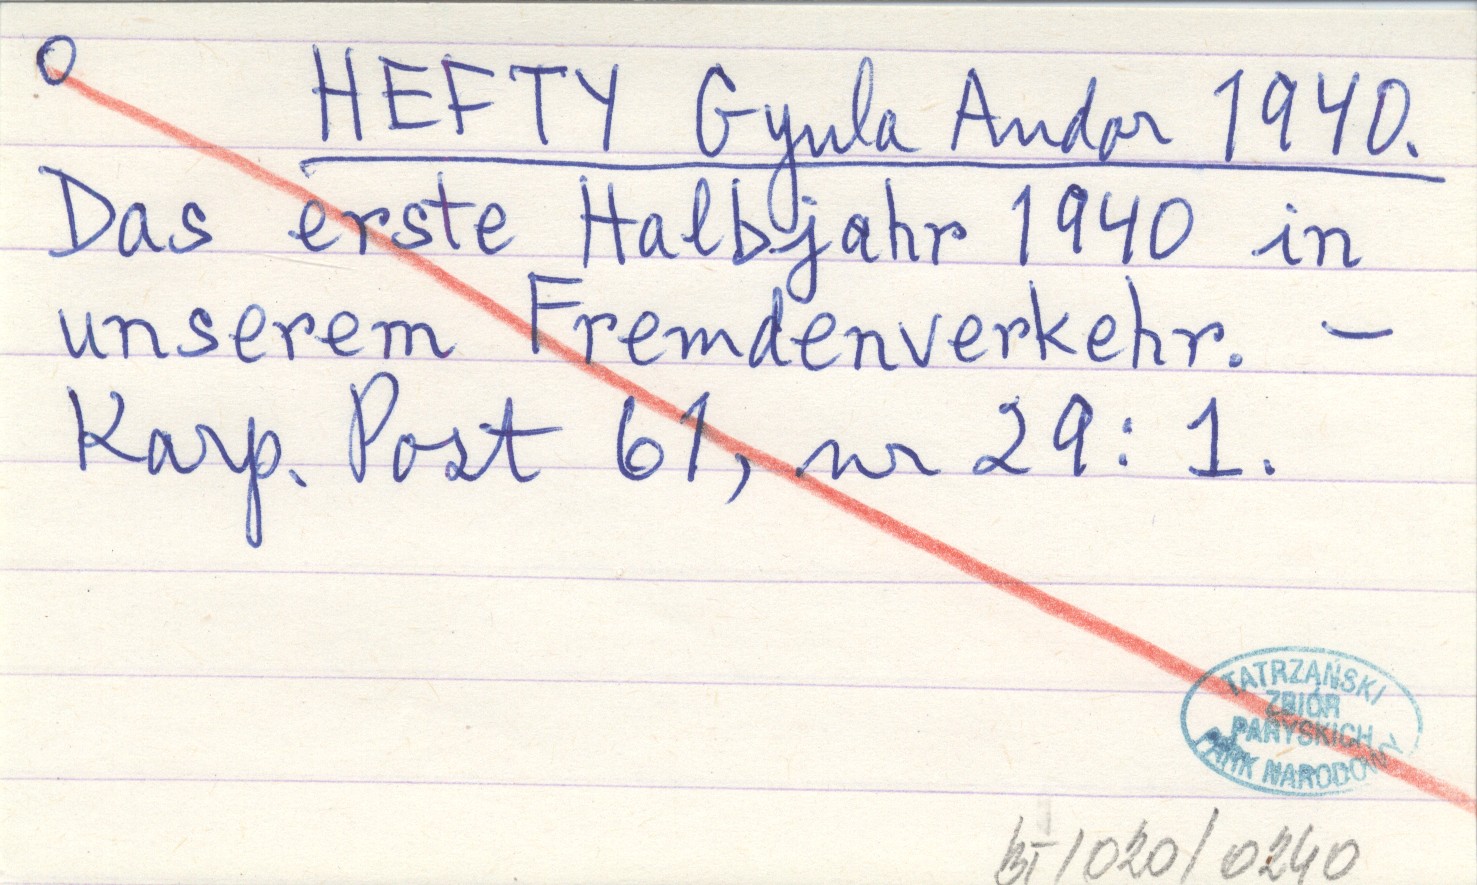 HEFTY Gyula Andor 1940.
Das erste Halbjahr 1940 in
unserem Fremdenverkehr. –
Karp. Post 61, nr 29: 1.
TATRZAŃSKI
ZBIÓR
PARYSKICH
PARK NARODOWY
/020/0240